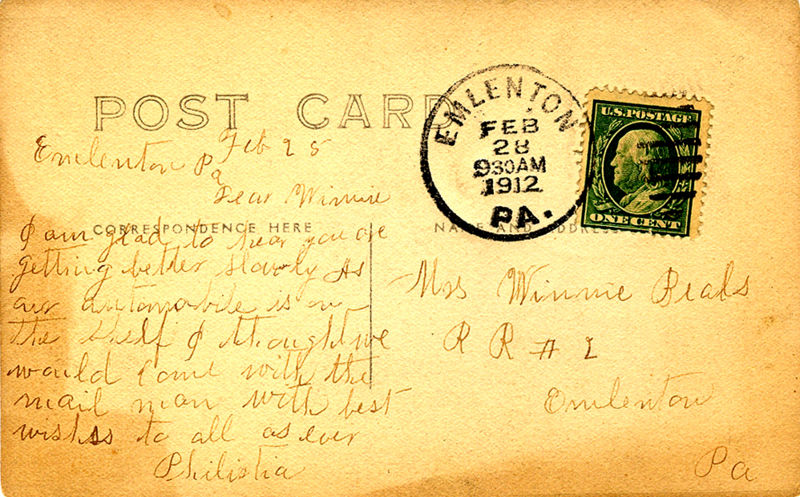 POST CARD
EMLENTON
FEB
28
930AM
1912
PA.
U.S. POSTAGE
ONE CENT
Emlenton Pa Feb 25
Dear Winnie
CORRESPONDENCE HERE
I am glad to hear you are
getting better slowly As
our automobile is on
the shelf I thought we
would come with the
mail man with best
wishes to all as ever
Philistia
NAME AND ADDRESS
Mrs Winnie Beals
R R # 2
Emlenton
Pa